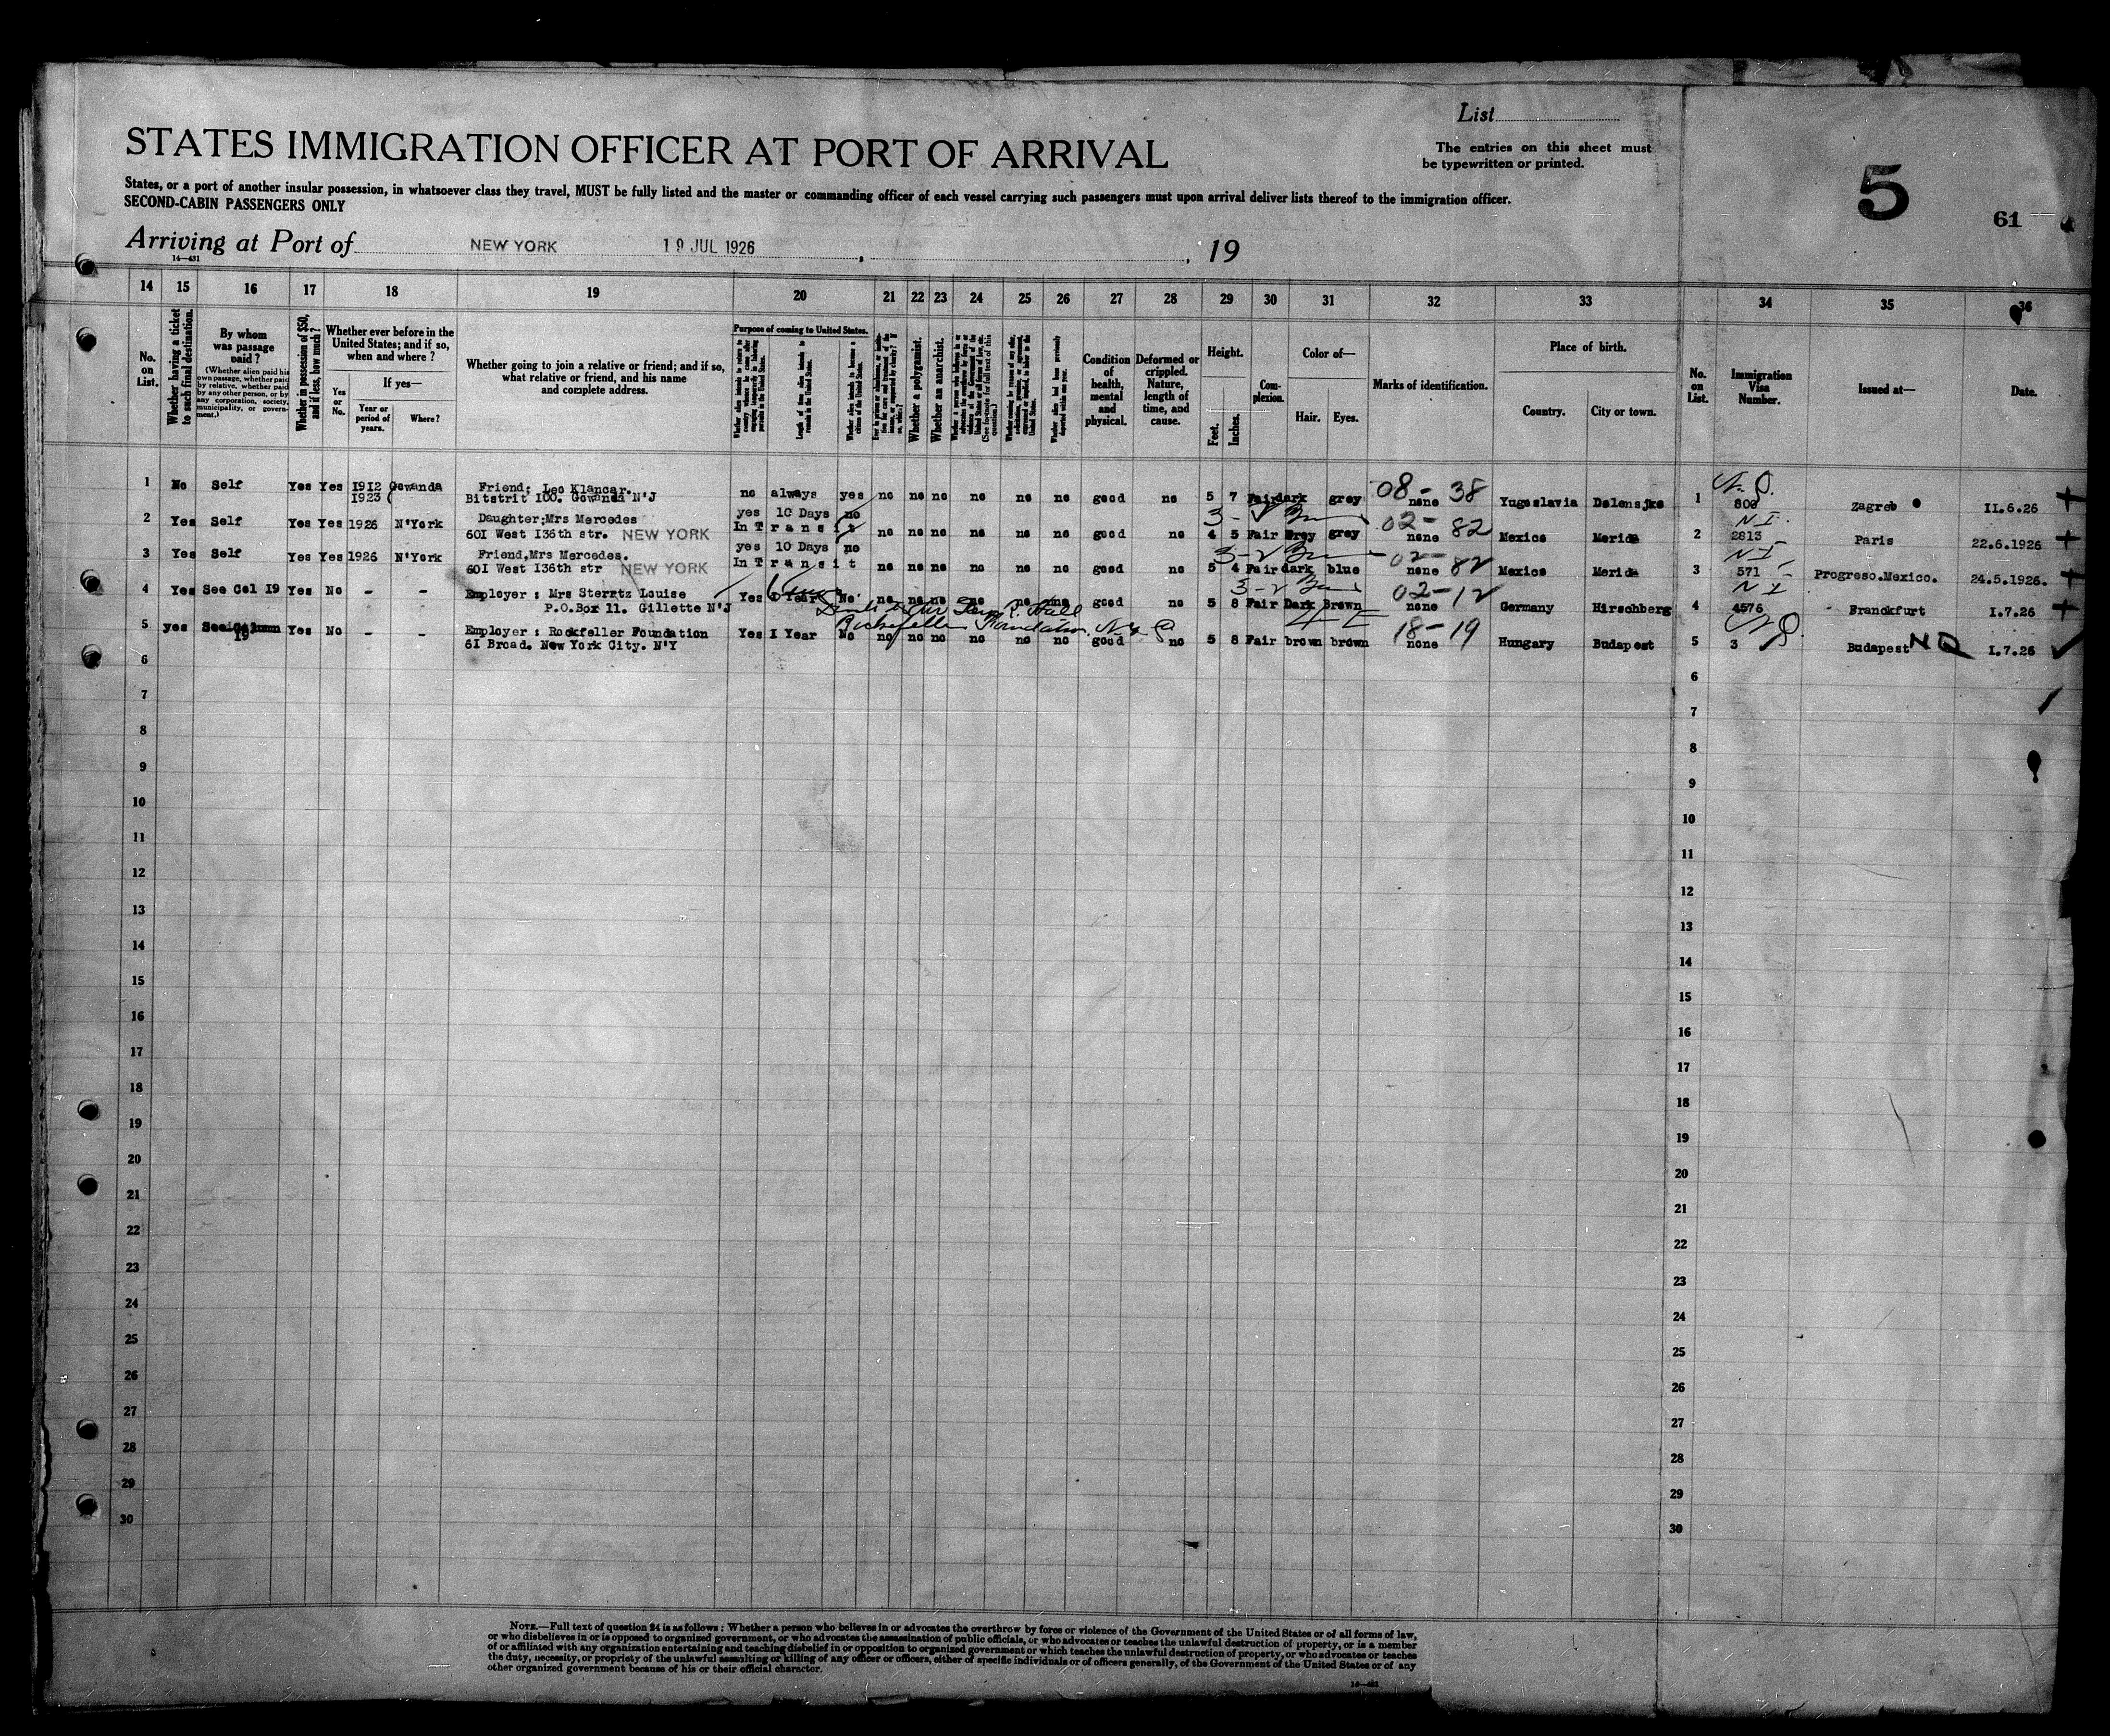 List
STATES IMMIGRATION OFFICER AT PORT OF ARRIVAL
The entries on this sheet must
be typewritten or printed.
5
61
States, or a port of another insular possession, in whatsoever class they travel, MUST be fully listed and the master or commanding officer of each vessel carrying such passengers must upon arrival deliver lists thereof to the immigration officer.
SECOND-CABIN PASSENGERS ONLY
Arriving at Port of NEW YORK 19 JUL 1926 , , 19
14—431
14 15 16 17 18 19 20 21 22 23 24 25 26 27 28 29 30 31 32 33 34 35 36
No. on List.
Whether having a ticket to such final destination.
By whom was passage paid?
(Whether alien paid his own passage, whether paid by relative, whether paid by any other person, or by any corporation, society, municipality, or government.)
Whether in possession of $50, and if less, how much?
Whether ever before in the United States; and if so, when and where?
Yes or No.
If yes—
Year or period of years.
Where?
Whether going to join a relative or friend; and if so, what relative or friend, and his name and complete address.
Purpose of coming to United States.
Length of time alien intends to remain in the United States.
Whether alien intends to become a citizen of the United States.
Whether a polygamist.
Whether an anarchist.
Condition of health, mental and physical.
Deformed or crippled. Nature, length of time, and cause.
Height.
Feet.
Inches.
Complexion.
Color of—
Hair.
Eyes.
Marks of identification.
Place of birth.
Country.
City or town.
No. on List.
Immigration Visa Number.
Issued at—
Date.
1 No Self Yes Yes 1912 Gowanda Friend; Leo Klancar. no always yes no no no no no no good no 5 7 Fair dark grey 08-38 none Yugoslavia 1 800 Zagreb II.6.26
1923 Bitstrit I00. Gowanda N'J
2 Yes Self Yes Yes 1926 N'York Daughter;Mrs Mercedes yes 10 Days no no no no no no no good no 4 5 Fair Grey grey 02-82 none Mexico Merida 2 2813 N I Paris 22.6.1926
60I West I36th str. NEW YORK In Transit
3 Yes Self Yes Yes 1926 N'York Friend,Mrs Mercedes. yes 10 Days no no no no no no no good no 5 4 Fair dark blue 02-82 none Mexico Merida 3 571 N I Progreso.Mexico. 24.5.1926.
60I West I36th str NEW YORK In Transit
4 Yes See Col I9 Yes No - - Employer : Mrs Sterntz Louise Yes I Year No no no no no no no good no 5 8 Fair Dark Brown 02-12 none Germany Hirschberg 4 4576 N I Franckfurt I.7.26
P.O.Box 11. Gillette N'J
Rockefeller Foundation N.Y.
5 yes See Column 19 Yes No - - Employer : Rockfeller Foundation Yes I Year No no no no no no good no 5 8 Fair brown brown 18-19 none Hungary Budapest 5 3 Budapest I.7.26
6I Broad. New York City. N'Y
6 6
7 7
8 8
9 9
10 10
11 11
12 12
13 13
14 14
15 15
16 16
17 17
18 18
19 19
20 20
21 21
22 22
23 23
24 24
25 25
26 26
27 27
28 28
29 29
30 30
NOTE.—Full text of question 24 is as follows: Whether a person who believes in or advocates the overthrow by force or violence of the Government of the United States or of all forms of law,
or who disbelieves in or is opposed to organized government, or who advocates the assassination of public officials, or who advocates or teaches the unlawful destruction of property, or is a member
of or affiliated with any organization entertaining and teaching disbelief in or opposition to organized government or which teaches the unlawful destruction of property, or who advocates or teaches
the duty, necessity, or propriety of the unlawful assaulting or killing of any officer or officers, either of specific individuals or of officers generally, of the Government of the United States or of any
other organized government because of his or their official character.
14—431